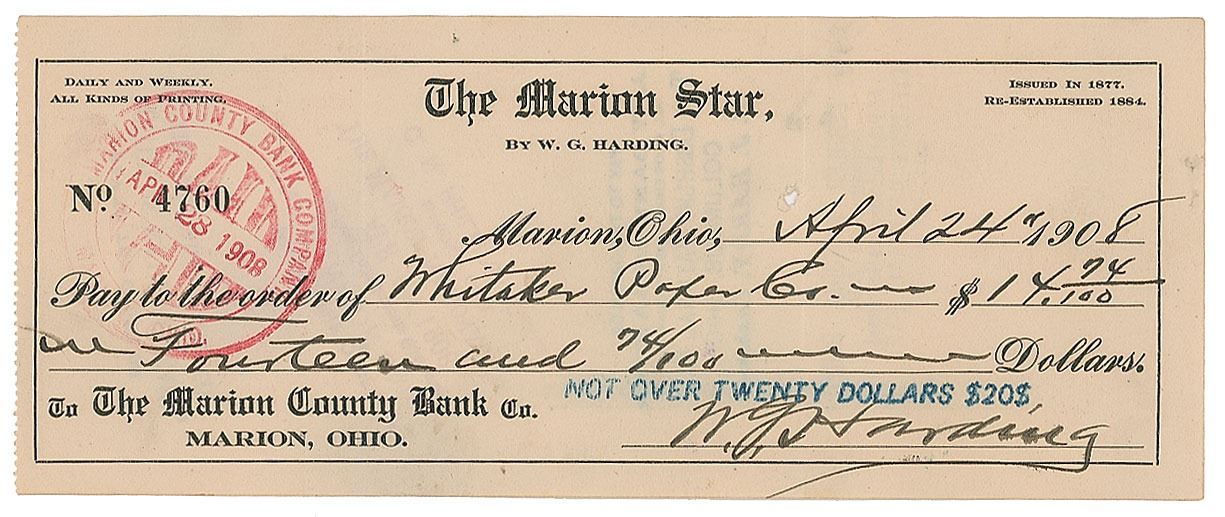 DAILY AND WEEKLY.
ALL KINDS OF PRINTING.
The Marion Star,
BY W. G. HARDING.
ISSUED IN 1877.
RE-ESTABLISHED 1884.
MARION COUNTY BANK COMPANY
PAID
APR 28 1908
No 4760
Marion, Ohio, April 24" 1908
Pay to the order of Whitaker Paper Co. $14.74/100
Fourteen and 74/100 Dollars.
NOT OVER TWENTY DOLLARS $20$
To The Marion County Bank Co.
MARION, OHIO.
W. G. Harding